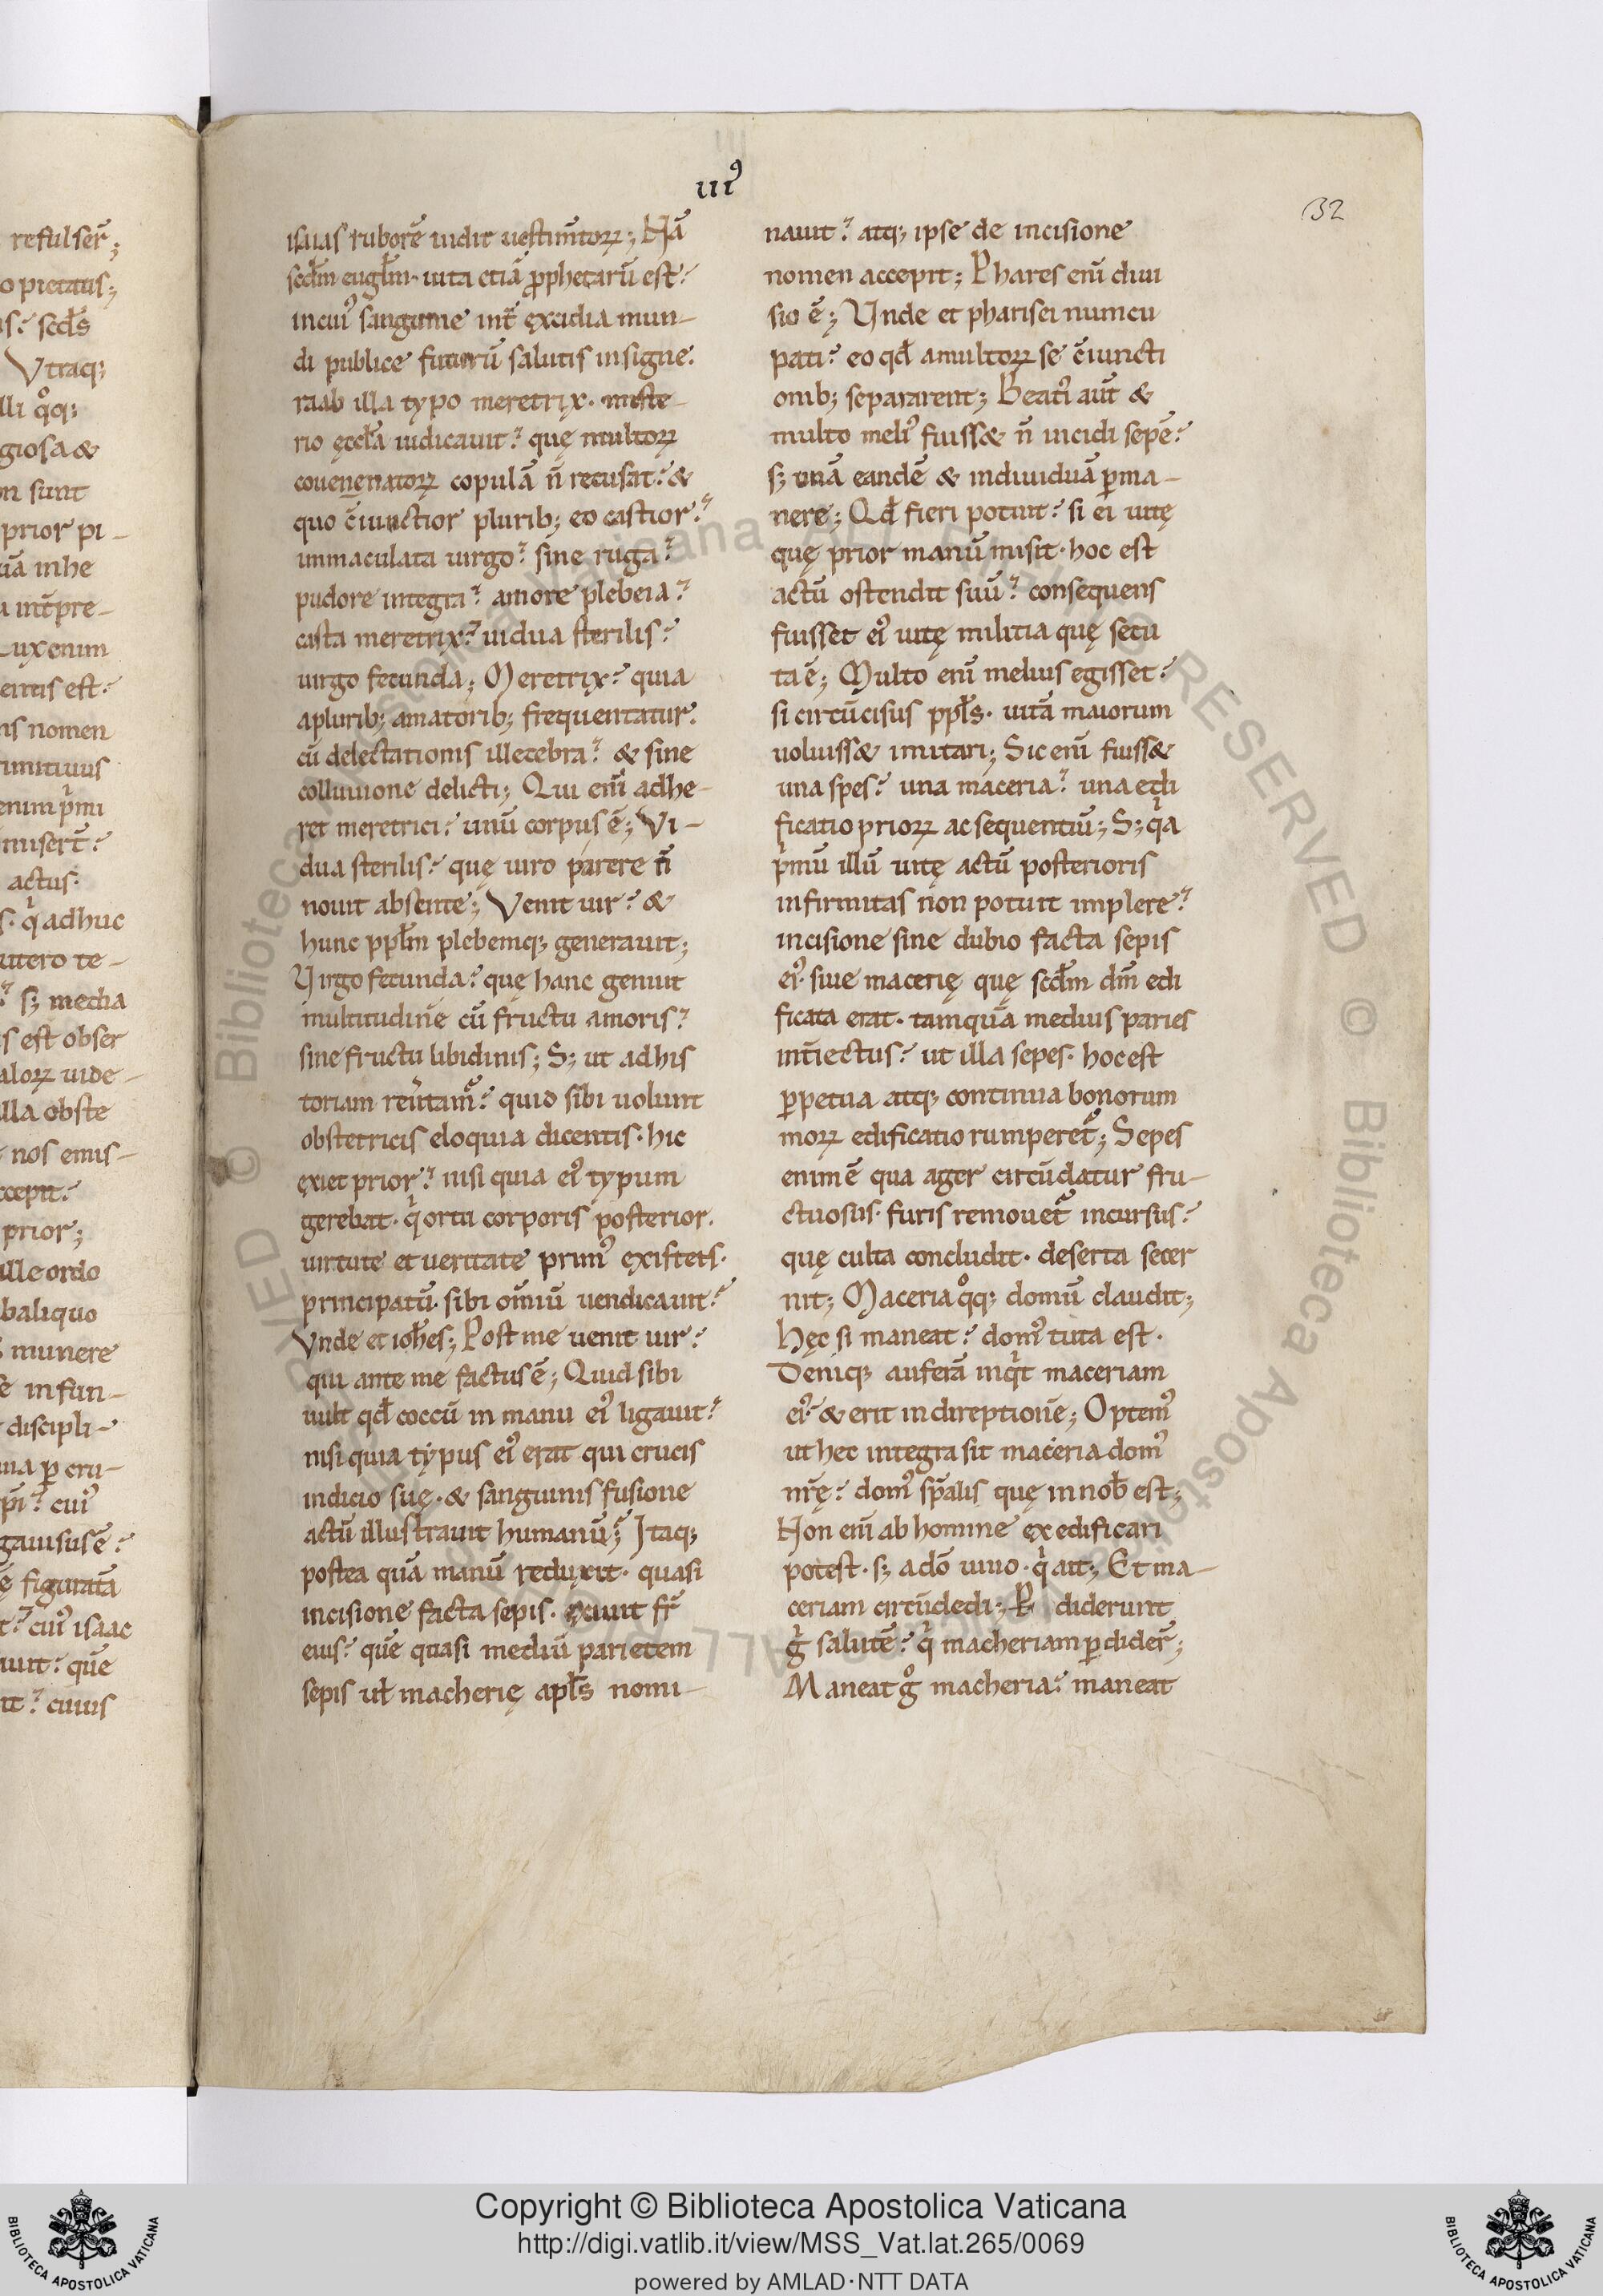 refulser̄;
o pietatis;
s? scd̄s
Vtraq;
lli qͦq;
giosa &
on sunt
prior pi-
uā inhe
a int̄pre-
Lux enim
entis est?
ns nomen
rimitiuus
enim pͥmi
miser̄t?
actus.
s. qͥ adhuc
utero te-
? s; media
s est obser
aloꝝ uide-
illa obste
nos emis-
ccepit?
prior;
ille ordo
baliquo
munere
ē in fun-
discipli-
uia ꝑ cru-
cuiꝰ
gauisus ē?
ē figuratā
t? cuiꝰ isaac
uit? quē
it? cuius
iiiꝰ
32
isaias ruborē uidit uestim̄toꝝ; Nā
scd̄m eugl̄m. uita etiā ꝓphetarū est?
in cuiꝰ sanguine int̄ excidia mun-
di publice futurū salutis insigne.
raab illa typo meretrix. miste-
rio ęccl̄a iudicauit? quę multoꝝ
couenenatoꝝ copulā n̄ recusat? &
quo c̄iunctior plurib; eo castior?
immaculata uirgo? sine ruga?
pudore integra? amore plebeia?
casta meretrix? uidua sterilis?
uirgo fecunda; Meretrix? quia
a plurib; amatorib; frequentatur.
cū delectationis illecebra? & sine
colluuione delicti; Qui eni̅ adhe-
ret meretrici? unū corpus ē; Vi-
dua sterilis? quę uiro parere n̄
nouit absente; Venit uir? &
hunc ppl̄m plebemq; generauit;
Virgo fecunda? quę hanc genuit
multitudinē cū fructu amoris?
sine fructu libidinis; S; ut ad his
toriam reu̅tam᷒? quid sibi uolunt
obstetricis eloquia dicentis. hic
exiet prior? nisi quia eiꝰ typum
gerebat. qͥ ortu corporis posterior.
uirtute et ueritate primꝰ existens.
principatū. sibi om̄iū uendicauit?
Vnde et ioh̄es; Post me uenit uir?
qui ante me factus ē; Quid sibi
uult qd̄ coccū in manu eiꝰ ligauit?
nisi quia typus eiꝰ erat qui crucis
indicio suę. & sanguinis fusione
actū illustrauit humanū; Itaq;
postea quā manū reduxit. quasi
incisione facta sepis. exiuit fr̄
eius? quē quasi mediū parietem
sepis ul̄ macherię apl̄s nomi-
nauit? atq; ipse de incisione
nomen accepit; Phares eni̅ diui
sio ē; Unde et pharisei nuncu
pati? eo qd̄ a multoꝝ se c̄iuncti
onib; separarent; Beatiꝰ aut̄ &
multo meliꝰ fuiss& n̄ incidi sepē?
s; unā eandē & indiuiduā ꝑma-
nere; Qd̄ fieri potuit? si ei uitę
quę prior manū misit. hoc est
actū ostendit suū? consequens
fuisset eiꝰ uitę militia quę secu
ta ē; Multo eni̅ melius egisset?
si circūcisus ppl̄s. uitā maiorum
uoluiss& imitari; Sic eni̅ fuiss&
una spes? una maceria? una edi
ficatio prioꝝ ac sequentiū; S; qͥa
pͥmū illū uitę actū posterioris
infirmitas non potuit implere?
incisione sine dubio facta sepis
eiꝰ. siue macerię quę scd̄m dm̄ edi
ficata erat. tamquā medius paries
int̄iectus? ut illa sepes. hoc est
ꝑpetua atq; continua bonorum
moꝝ edificatio rumperet᷒; Sepes
enim ē qua ager circūdatur fru-
ctuosus. furis remouet᷒ incursus?
quę culta concludit. deserta secer
nit; Maceria qͦq; domū claudit;
Hęc si maneat? domꝰ tuta est.
Deniq; auferā inqͥt maceriam
eiꝰ? & erit in direptionē; Optemꝰ
ut hec integra sit maceria domꝰ
nr̄ę? domꝰ sp̄alis quę in nob̄ est;
Non eni̅ ab homine exedificari
potest. s; a dō uiuo. qͥ ait; Et ma-
ceriam circūdedi; P diderunt
gͥ salutē? qͥ macheriam ꝑdider̄;
Maneat gͦ macheria? maneat
Copyright © Biblioteca Apostolica Vaticana
http://digi.vatlib.it/view/MSS_Vat.lat.265/0069
powered by AMLAD·NTT DATA
BIBLIOTECA APOSTOLICA VATICANA
BIBLIOTECA APOSTOLICA VATICANA